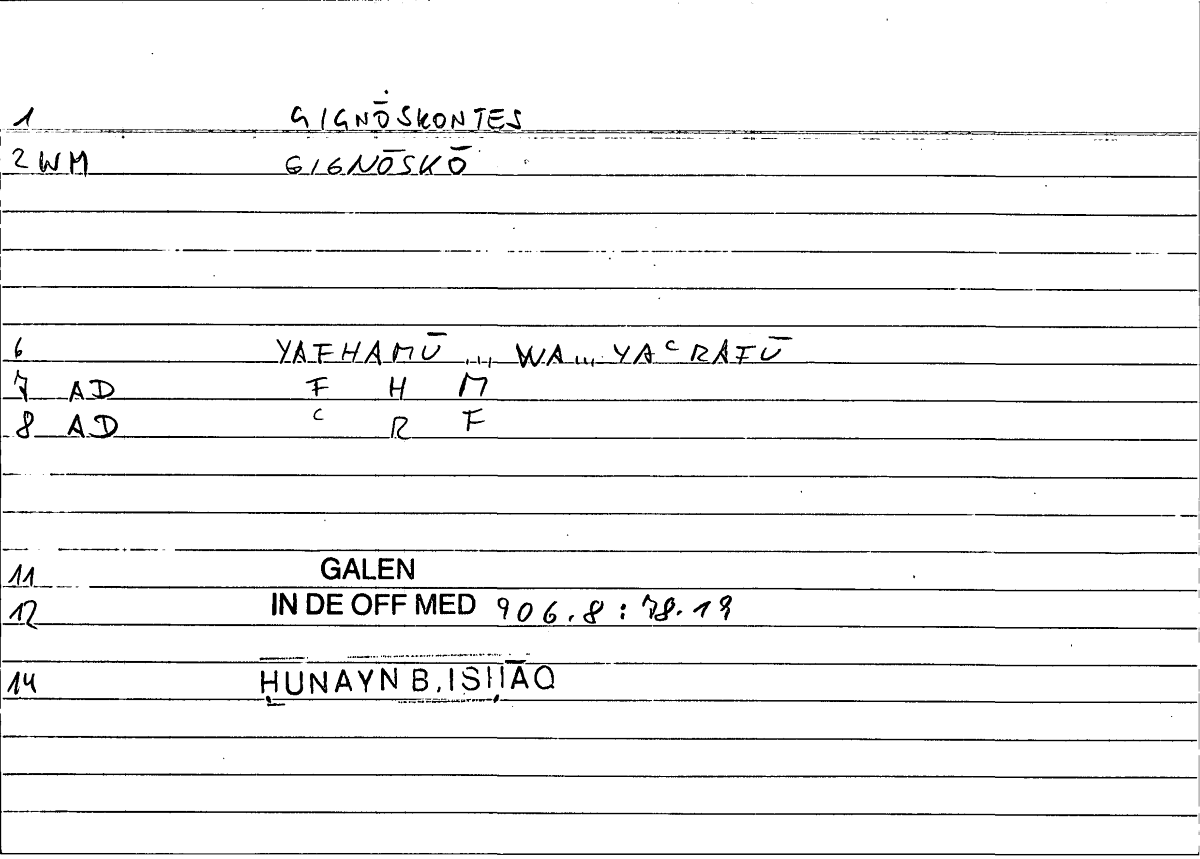 1 GIGNŌSKONTES
2 WM GIGNŌSKŌ
6 YAFHAMŪ ... WA ... YAᶜRAFŪ
7 AD F H M
8 AD ᶜ R F
11 GALEN
12 IN DE OFF MED 906.8 : 78.19
14 ḤUNAYN B. ISḤĀQ